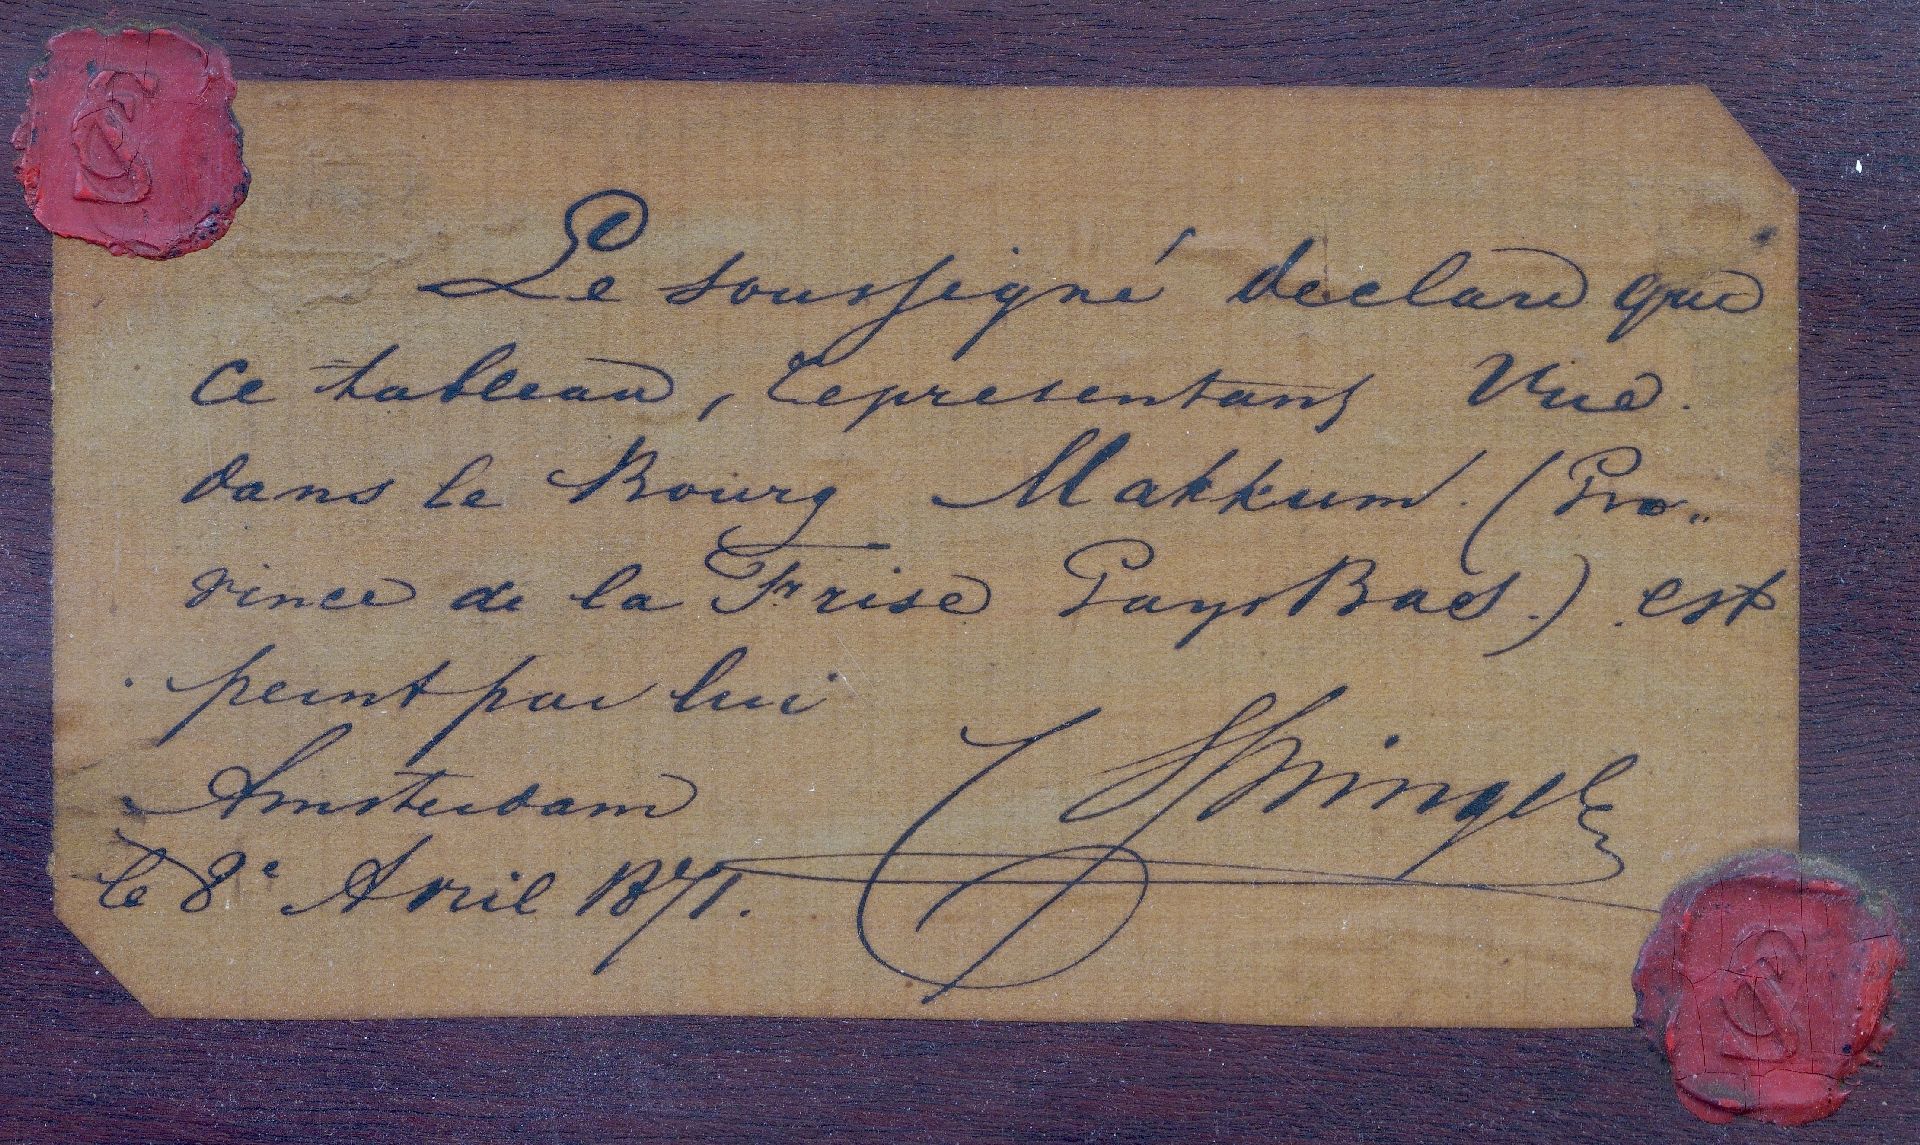 Le soussigné declare que
ce tableau, representans Vue.
dans le Bourg Makkum. (Pro„
vince de la Frise Pays Bas.) est
peint par lui
Amsterdam C Springer
le 8e Avril 1871.
CS
CS